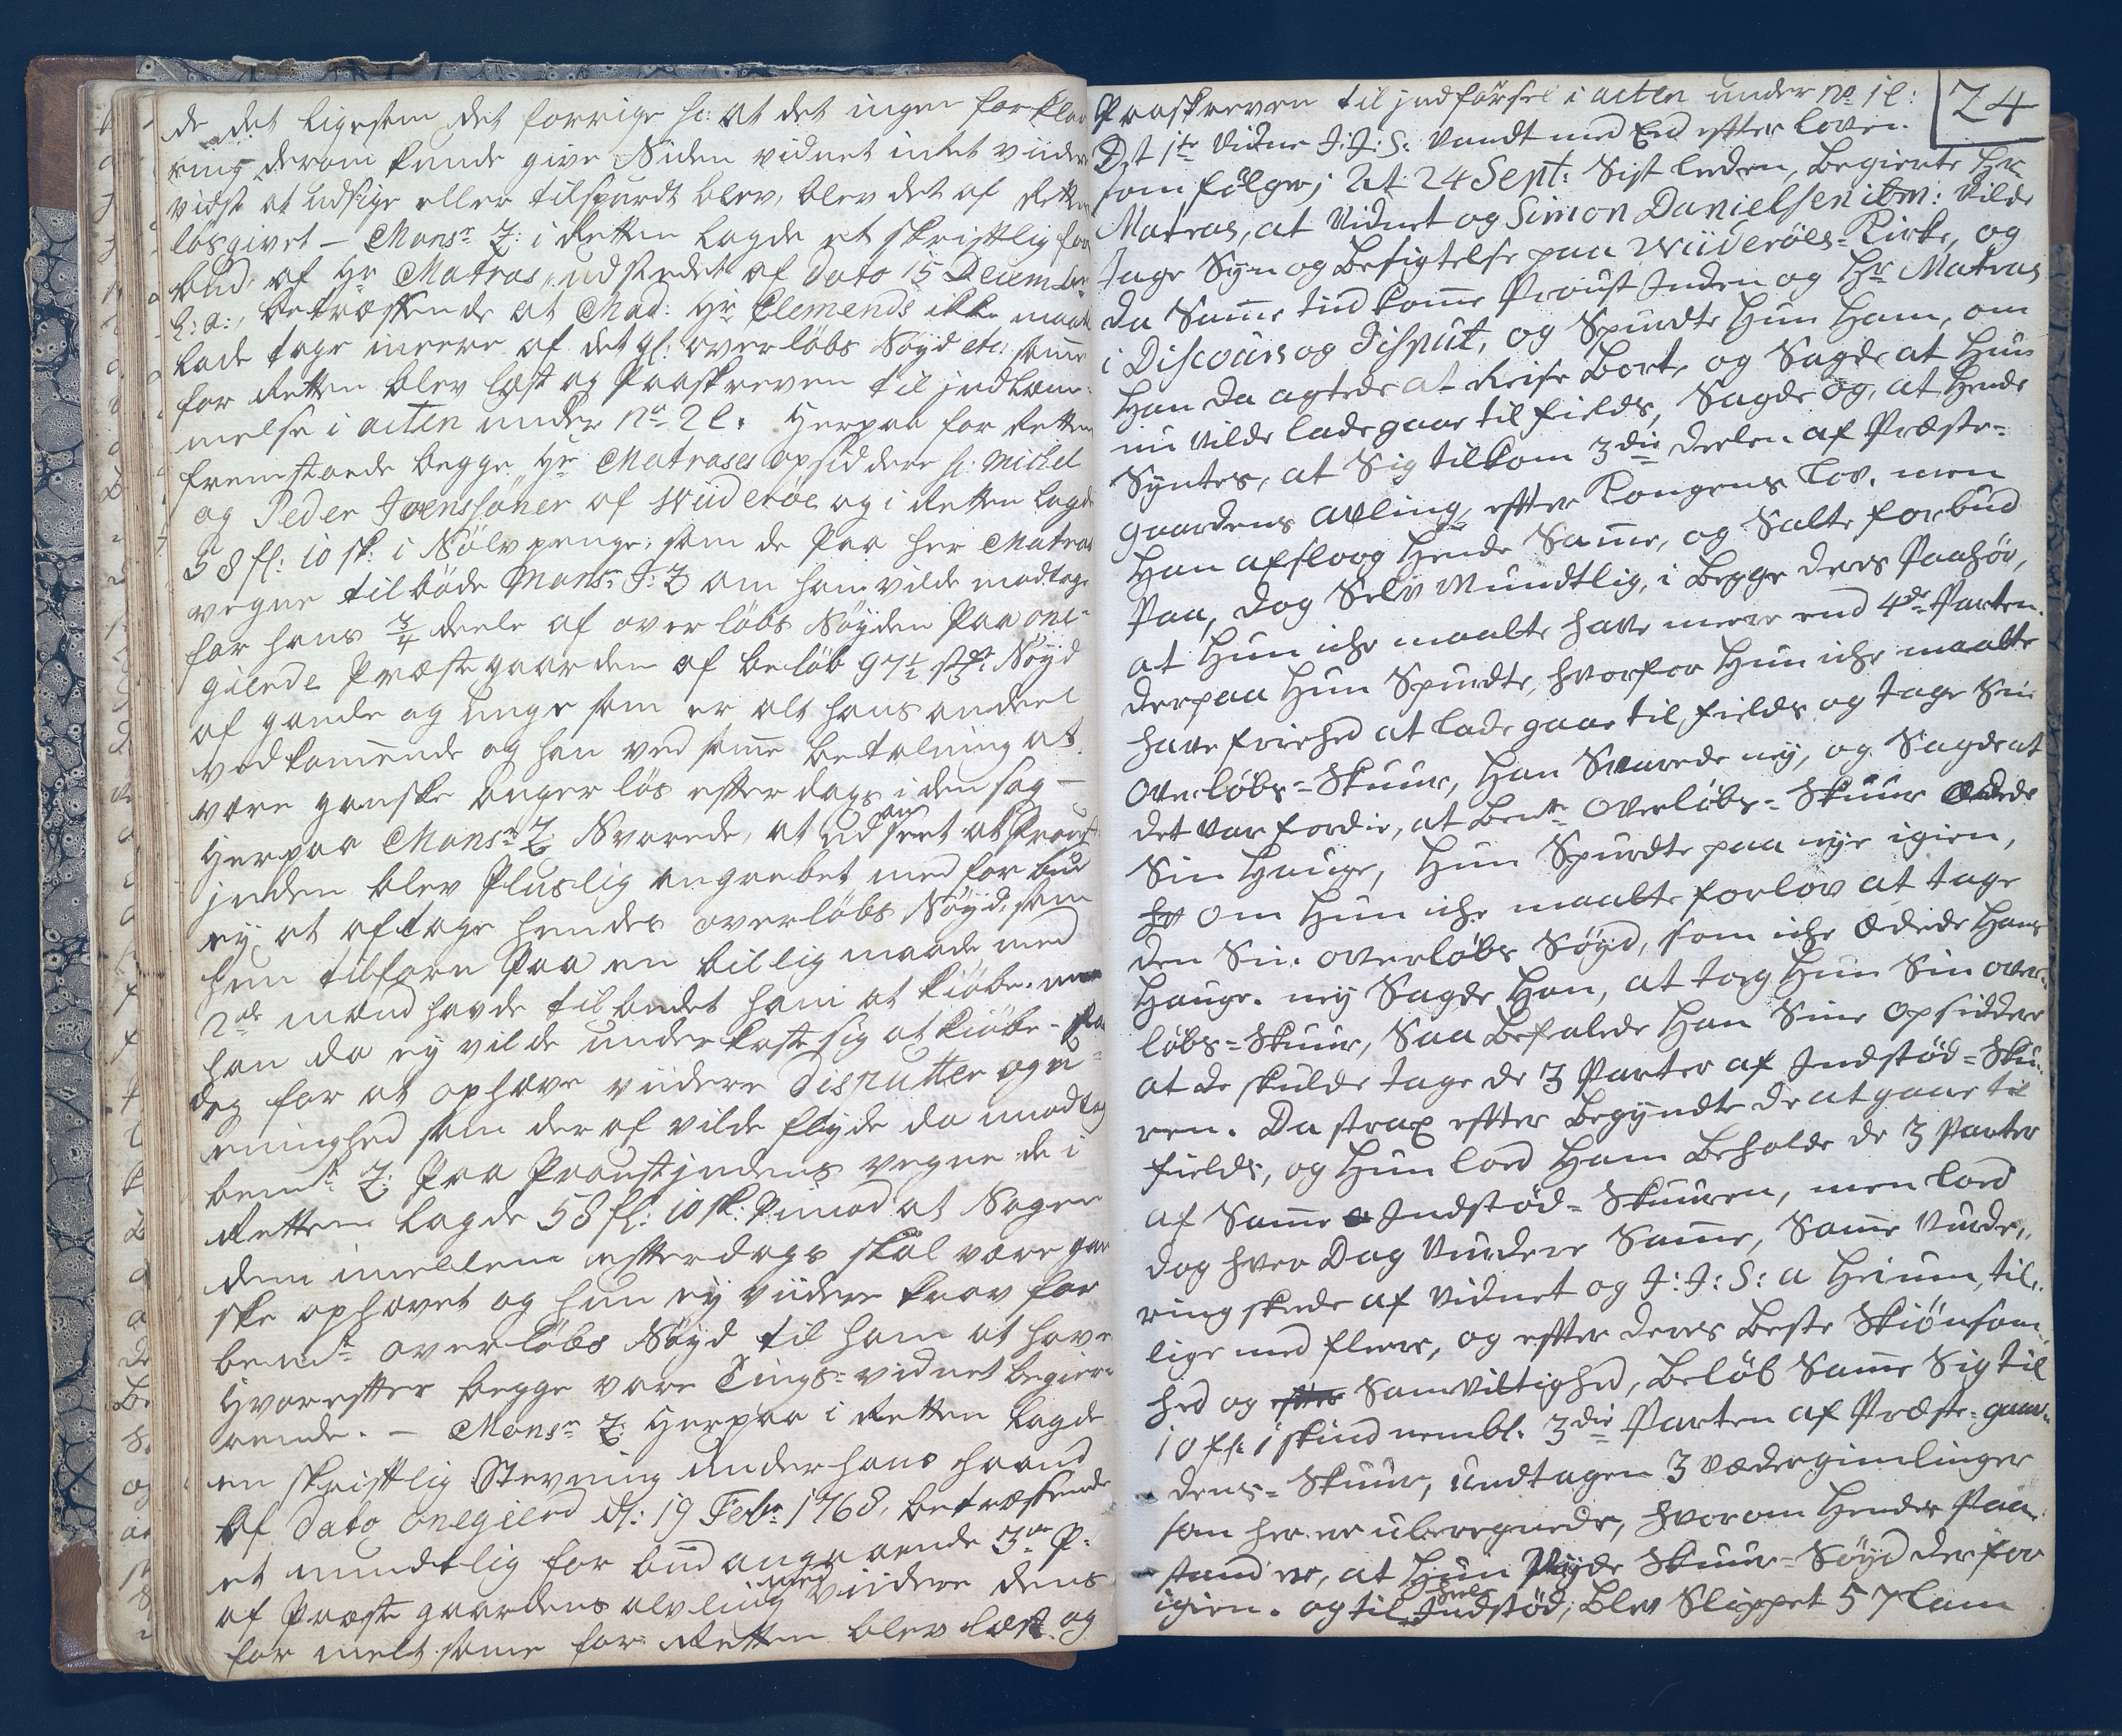 de det ligesom det forrige h: at det ingen forklar
ring derom kunde give Siden vidnet intet viidere
vidste at udsige eller tilspurdt blev, blev det af Retten
løsgivet – Monsr Z: i Retten lagde et skrifttlig for
bud af Hr Matras udstedet af Dato 15 December
h: a:, betræffende at Mad: Hr Clemends ikke maatte
lade tage meere af det gl: overløbs Søyd etc: som
for Retten blev læst og Paaskreven til indlæm-
melse i acten under No 2 l. Herpaa for Retten
fremstoede begge Hr Matrases opsiddere h: Michel
og Peder Joenssøner af Wiiderøe og i Retten lagde
58 fl: 10 sk: i Sølvpenge, som de Paa her Matras
vegne tilbøde Monsr J: Z om han vilde modtage
for hans 3/4 deele af overløbs Søyden Paa one-
gierde Præstegaarden af beløb 97½ st: Søyd
af gamle og unge som er alt hans andeel
vedkomende og han ved some betalning at
være ganske anger løs effter dags i den sag –
Herpaa Monsr Z Svarede, at ud seet at Proust
inden blev Pluslig angrebet med forbud
ey at aftage hendes overløbs Søyd, som
hun tilforn Paa en billig maade med
2de mænd havde tilbødet ham at kiøbe. men
han da ey vilde underkaste sig at kiøbe –
dog for at ophæve viidere Disputter og u-
eenighed som der af vilde flyde da modtog
bemte Z: Paa Proustindens vegne de i
Retten lagde 58 fl: 10 sk: imod at Sagen
dem imellem effterdags skal være gan
ske ophævet og hun ey viidere krav for
bemte overløbs Søyd til ham at have
Hvoreffter begge vare Tings-vidnet begier-
ende. – Monsr Z: Herpaa i Retten lagde
en skrifttlig Stevning under hans haand
Af Dato onegierd d: 19 Febr 1768, betræffende
et mundtlig forbud angaaende 3de P:
af Præste gaardens alvling med viidere dens
for melt some for Retten blev læst og
24
Paaskreven til indførsel i acten under No 1 l:
Det 1te Vidne J: J: S: Vandt med Eed effter loven
som følger; At 24 Sept: Sist leeden, Begierte Hr
Matras, at Vidnet og Simon Danielsen ibm: Vilde
tage Syn og Besigtelse paa Wiiderøes Kirke, og
da Same tiid kome Proust Inden og Hr Matras
i Discours og Disput, og Spurdte Hun Ham, om
Han da agtede at Reise Bort, og Sagde at Hun
nu Vilde lade gaae til fields, Sagde og, at Hende
Syntes, at Sig tilkom 3die deelen af Præste-
gaardens Avling, effter Kongens lov. men
Han afsloog Hende Same, og Satte forbud
Paa, dog Selv Mundtlig, i Begge deres Paahør,
at Hun iche maatte have meere end 4de Parten
derpaa Hun Spurdte, hvorfor Hun iche maatte
have friehed at lade gaae til fields og tage Sin
Overløbs-Skuur, Han Svarede ney, og Sagde at
det var fordie, at Bemte Overløbs-Skuur Ædede
Sin Hauge, Hun Spurdte paa nye igien,
om Hun iche maatte forlov at tage
den Sin overløbs Søyd, som iche Ædede Hans
Hauge. ney Sagde Han, at tog Hun Sin over-
løbs-Skuur, Saa Befalede Han Sine opsiddere
at de skulde tage de 3 Parter af Indstød-Sku-
ren. Da strax effter Begyndte de at gaae til
fields, og Hun loed Ham Beholde de 3 Parter
af Same Indstød-Skuuren, men loed
dog hver Dag Vurdere Same, Same Vurde-
ring skede af Vidnet og J: J: S: a Heium, til-
lige med fleere, og effter deres Beste Skiønsom-
hed og Samvittighed, Beløb Same Sig til
10 fl: 1 skind nembl. 3die Parten af Præste-gaar-
dens-Skuur, Undtagen 3 Vædergimlinger
som her er uberegnede, hvorom Hendes Paa-
stand er, at Hun Nyde Skuur-Søyd derfor
igien. og til Indstød, Blev Slippet 57 lam